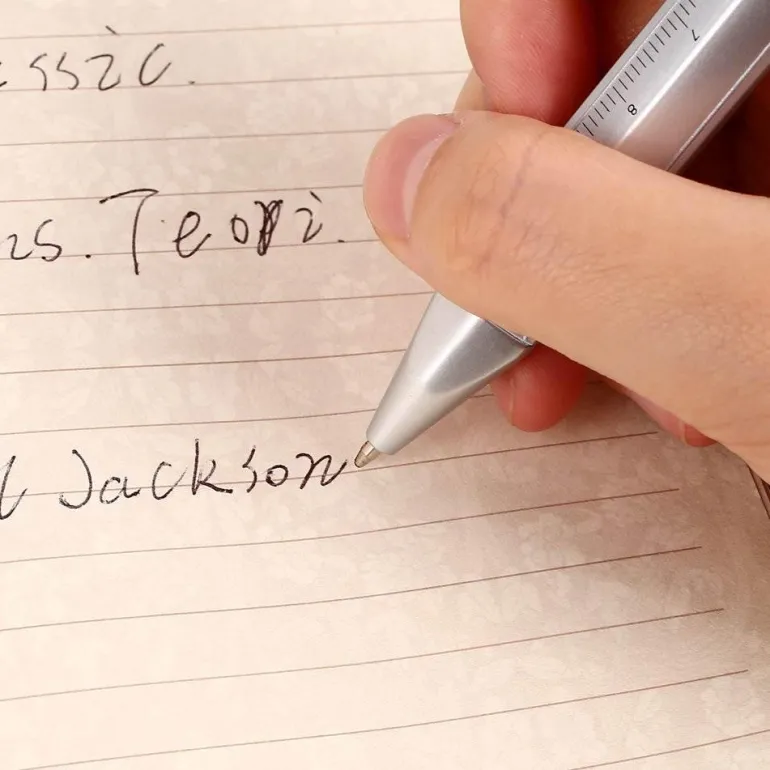 ssic.
us. Teori.
l Jackson
7
8